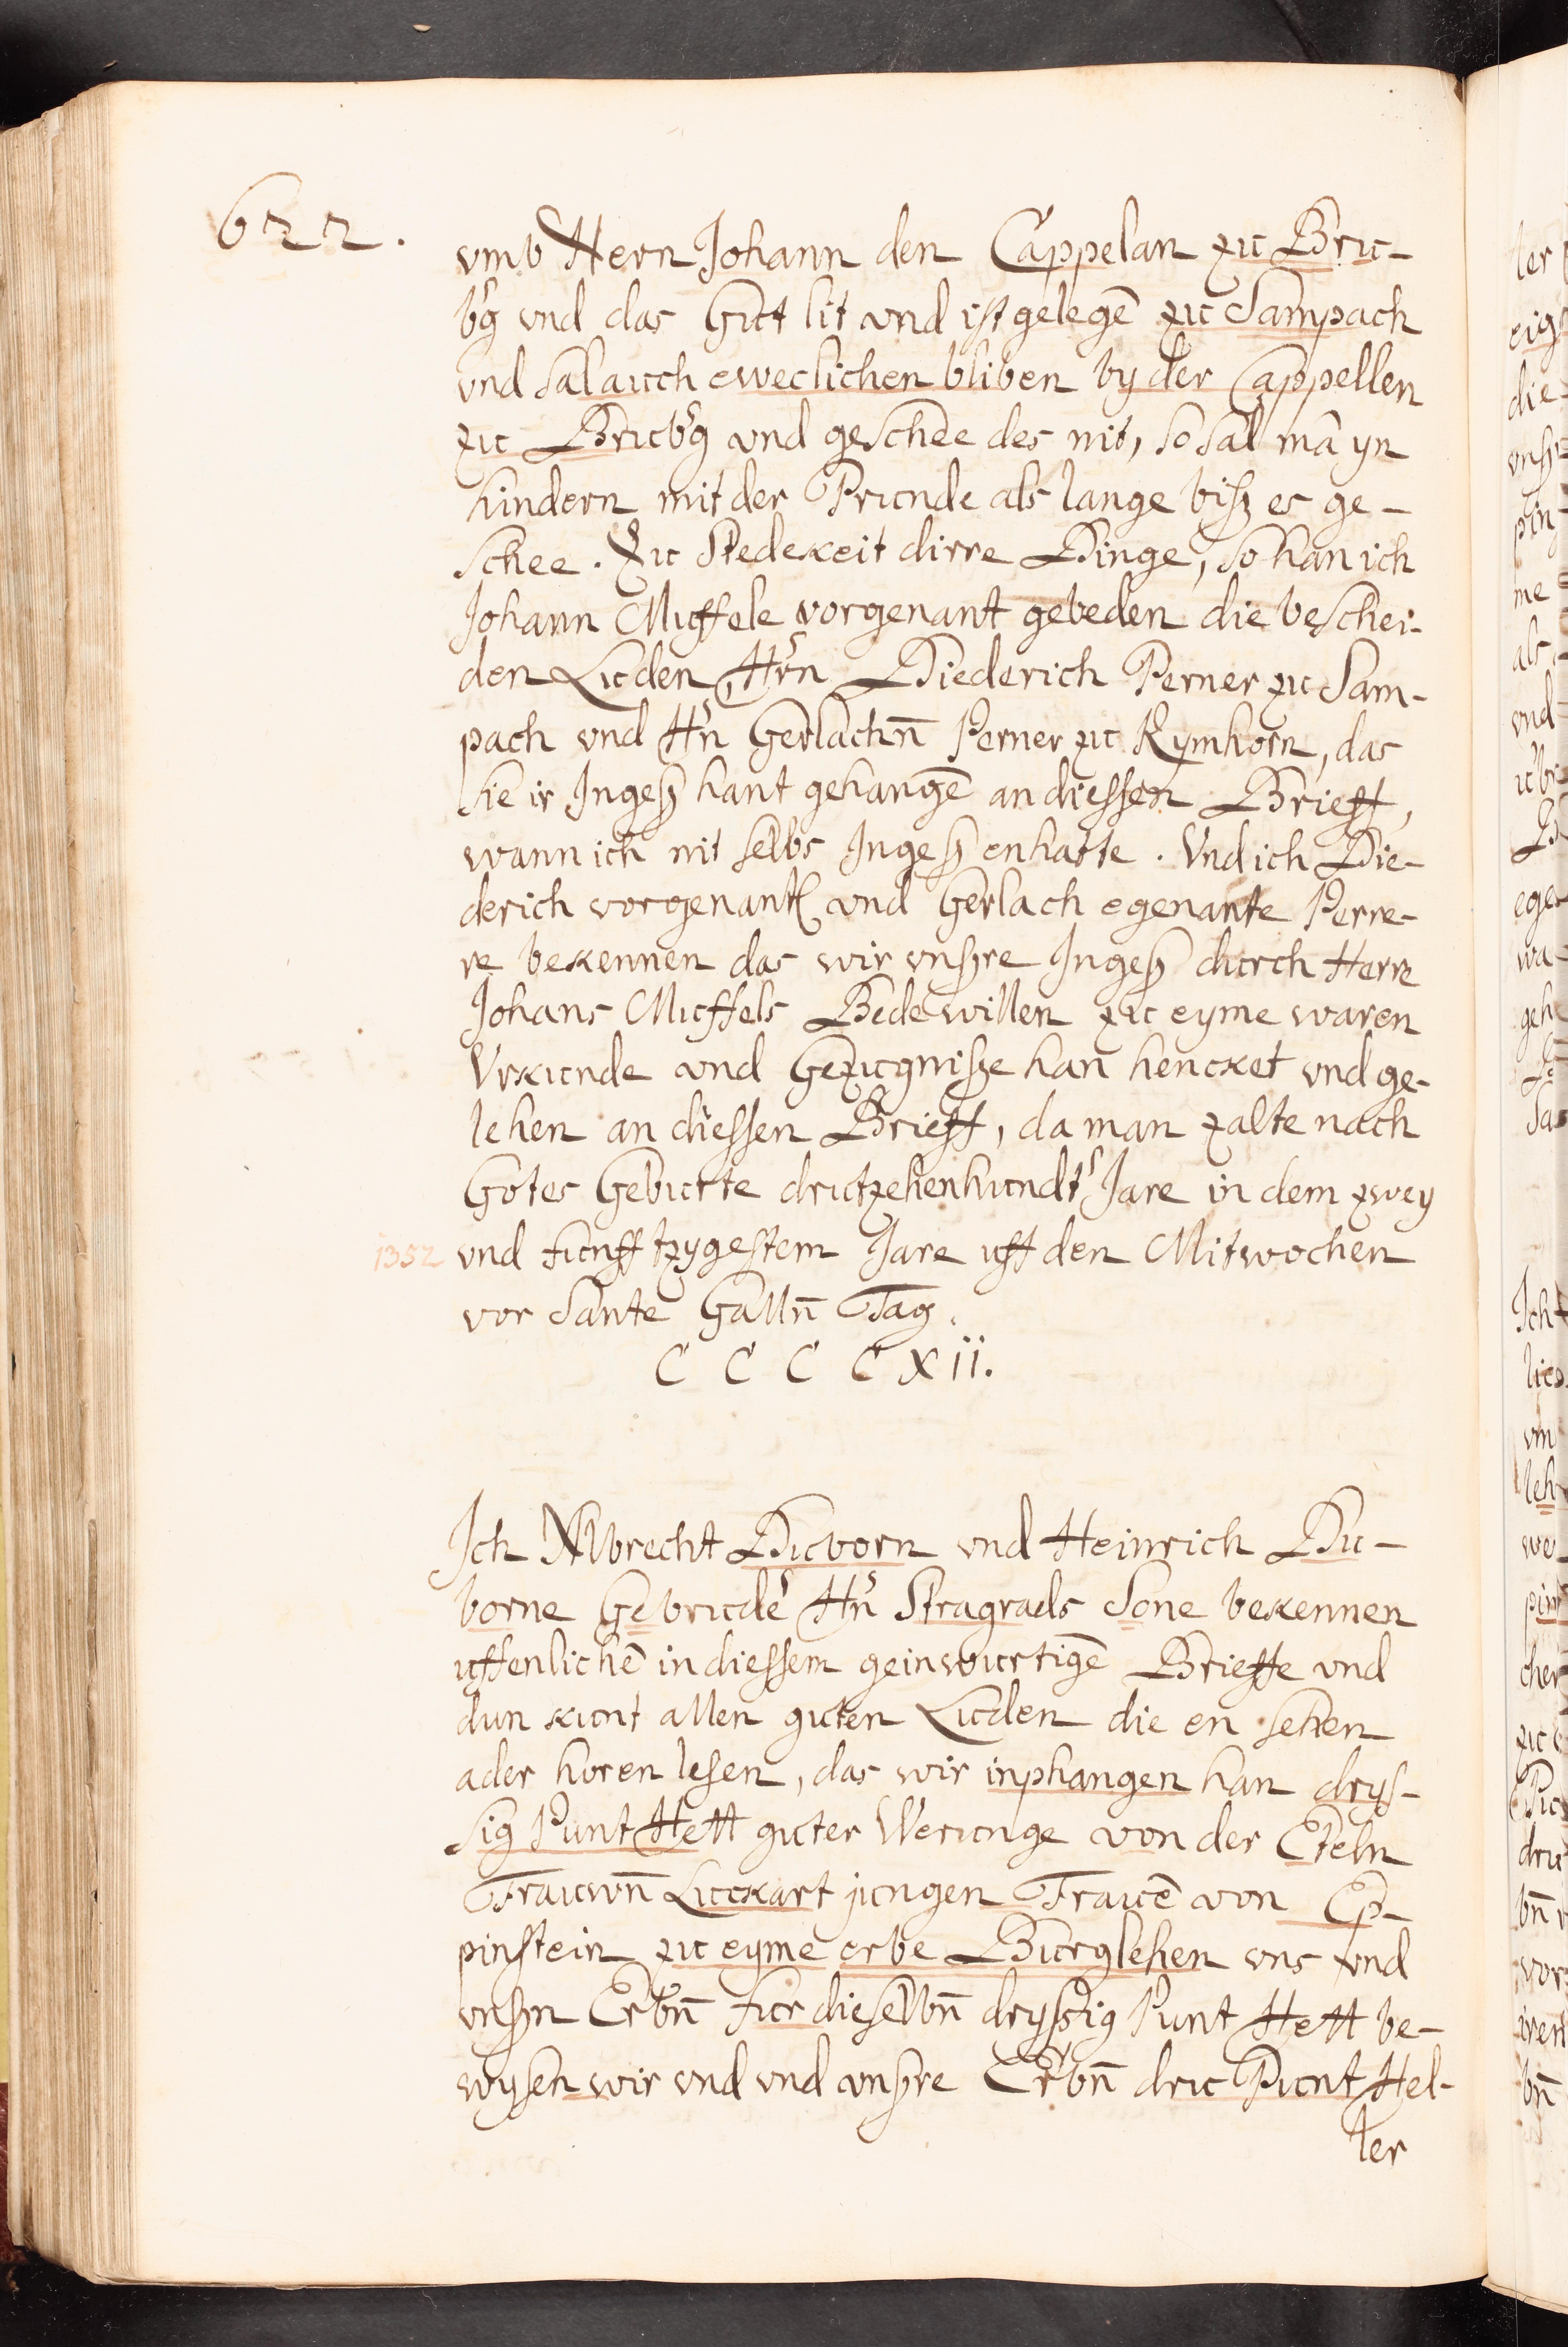 622.
vmb Hern Johann den Cappelan zu Bru-
bg vnd das Gutt lit vnd ist gelegē zu Sampach
vnd sal auch eweclichen bliben by der Cappellen
zu Brubg vnd geschee des nit, so sal mā yn
hindern mit der Prunde als lange bisz es ge-
schee. Zu Stedekeit dirre Dinge, so han ich
Johann Muffele vorgenant gebeden die beschei-
den Luden, Hrn Diederich Perner zu Sam-
pach vnd Hn Gerlachn̄ Perner zu Rymhorn, das
sie ir Ingesz hant gehangē an diessen Brieff,
wann ich nit selbs Ingesz enhatte. Vnd ich Die-
derich vorgenant vnd Gerlach egenante Perre-
re bekennen das wir vnszre Ingesz durch Herre
Johans Muffels Bede willen zu eyme waren
Vrkunde vnd Gezugnisze han hencket vnd ge-
lehen an diessen Brieff, da man zalte nach
Gotes Geburte drutzehenhundt Jare in dem zwey
1352 vnd funfftzygestem Jare uff den Mitwochen
vor Sante Galln̄ Tag.
C C C C X ii.
Ich Albrecht Duborn vnd Heinrich Du-
borne Gebrude Hn Stragrads Sone bekennen
uffenlichē in diessem geinwurtigē Brieffe vnd
dun kunt allen guten Luden die en sehen
ader horen lesen, das wir inphangen han drys-
sig Punt Hell guter Werunge von der Edeln
Frauwn̄ Luckart jungen Frauē von Ep-
pinstein zu eyme erbe Burglehen vns vnd
vnszn Erbn̄ fur dieselbn̄ dryszig Punt Hell be-
wysen wir vnd vnd vnszre Erbn̄ dru Punt Hel-
ler